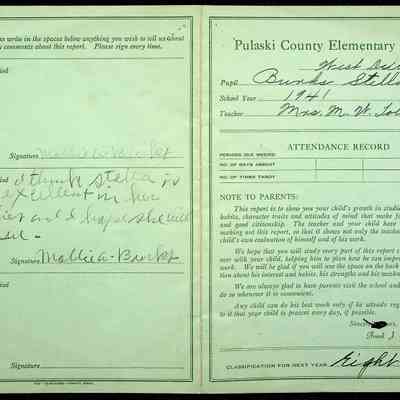 se write in the spaces below anything you wish to tell us about
y comments about this report. Please sign every time.
iod
Signature Mollie A. Burks
iod
I think Stella is
excellent in her
and I hope she will
Signature Mollie A. Burks
iod
Signature
Pulaski County Elementary
West
Pupil Burks Stella
School Year 1941
Teacher Mrs. M. W.
ATTENDANCE RECORD
PERIODS (SIX WEEKS)
NO. OF DAYS ABSENT
NO. OF TIMES TARDY
NOTE TO PARENTS:
This report is to show you your child's growth in studies
habits, character traits and attitudes of mind that make f
and good citizenship. The teacher and your child have
making out this report, so that it shows not only the teache
child's own evaluation of himself and of his work.
We hope that you will study every part of this report c
over with your child, helping him to plan how to can impro
work. We will be glad if you will use the space on the back
tion about his interest and habits, his strengths and his weakn
We are always glad to have parents visit the school and
do so whenever it is convenient.
Any child can do his best work only if he attends reg
to it that your child is present every day, if possible.
Fred J
CLASSIFICATION FOR NEXT YEAR Eight